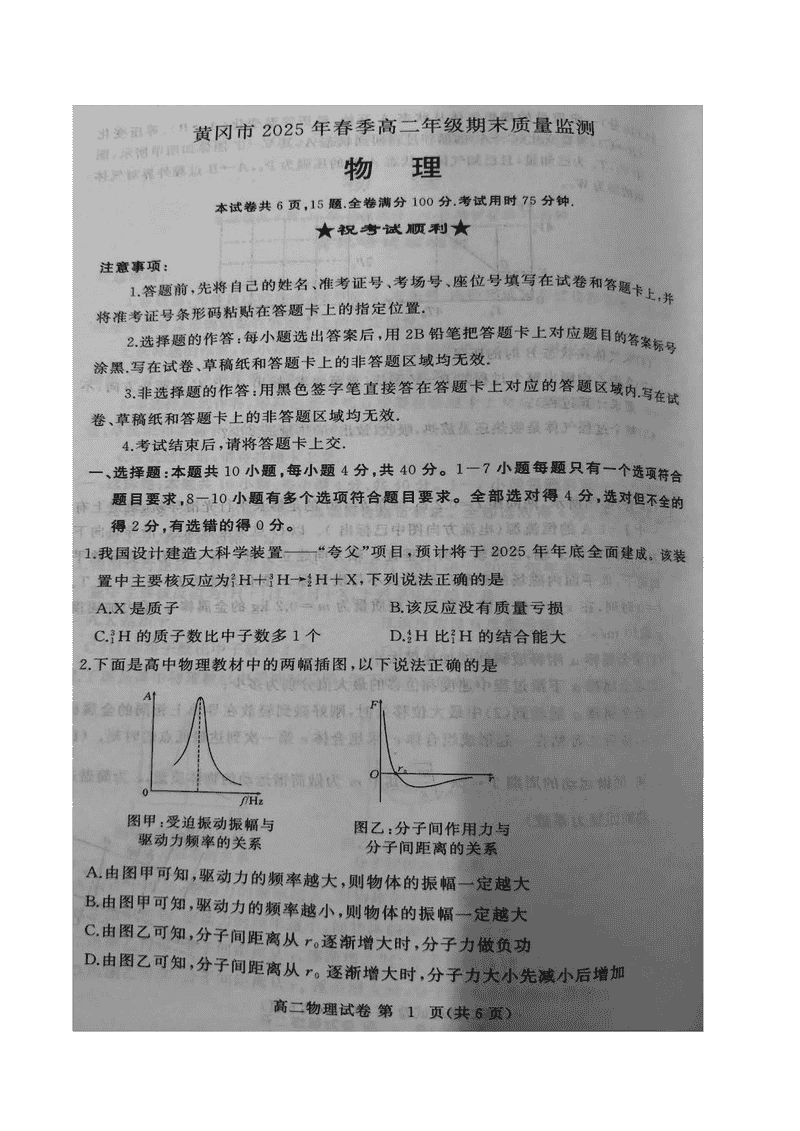 黄冈市 2025 年春季高二年级期末质量监测
物 理
本试卷共 6 页,15 题.全卷满分 100 分.考试用时 75 分钟.
★祝考试顺利★
注意事项:
1.答题前,先将自己的姓名、准考证号、考场号、座位号填写在试卷和答题卡上,并
将准考证号条形码粘贴在答题卡上的指定位置.
2.选择题的作答:每小题选出答案后,用 2B 铅笔把答题卡上对应题目的答案标号
涂黑.写在试卷、草稿纸和答题卡上的非答题区域均无效.
3.非选择题的作答:用黑色签字笔直接答在答题卡上对应的答题区域内.写在试
卷、草稿纸和答题卡上的非答题区域均无效.
4.考试结束后,请将答题卡上交.
一、选择题:本题共 10 小题,每小题 4 分,共 40 分。1—7 小题每题只有一个选项符合
题目要求,8—10 小题有多个选项符合题目要求。全部选对得 4 分,选对但不全的
得 2 分,有选错的得 0 分。
1.我国设计建造大科学装置——“夸父”项目,预计将于 2025 年年底全面建成。该装
置中主要核反应为²₁H+³₁H→⁴₂H+X,下列说法正确的是
A.X 是质子 B.该反应没有质量亏损
C.³₁H 的质子数比中子数多 1 个 D.⁴₂H 比²₁H 的结合能大
2.下面是高中物理教材中的两幅插图,以下说法正确的是
A
0
f/Hz
F
O
r₀
r
图甲:受迫振动振幅与
驱动力频率的关系
图乙:分子间作用力与
分子间距离的关系
A.由图甲可知,驱动力的频率越大,则物体的振幅一定越大
B.由图甲可知,驱动力的频率越小,则物体的振幅一定越大
C.由图乙可知,分子间距离从 r₀逐渐增大时,分子力做负功
D.由图乙可知,分子间距离从 r₀ 逐渐增大时,分子力大小先减小后增加
高二物理试卷 第 1 页(共 6 页)